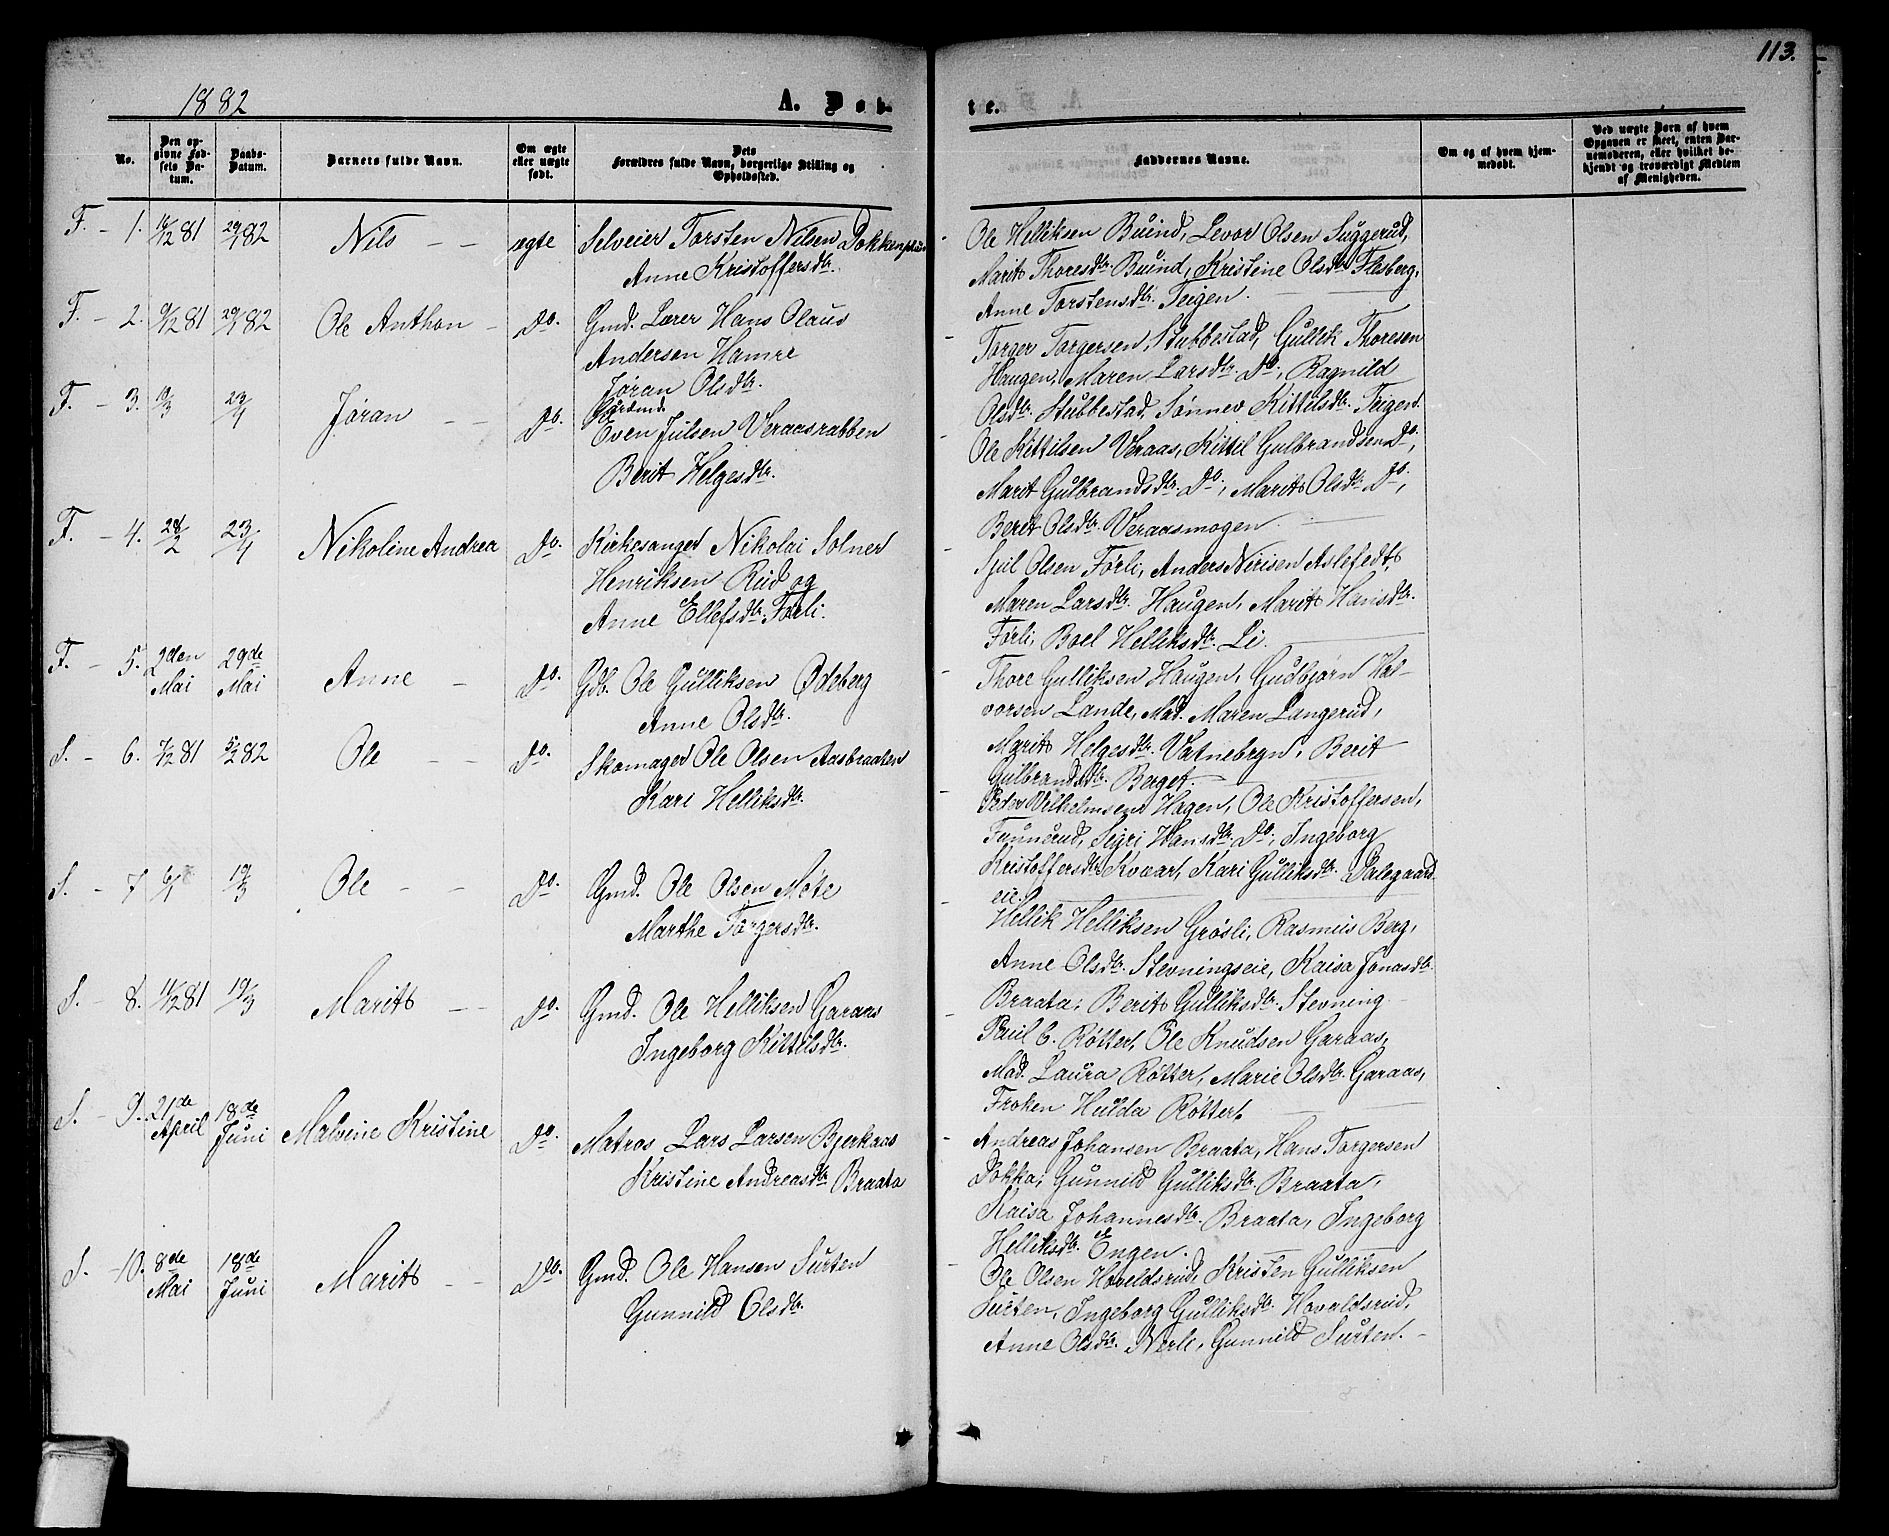 113.
1882
A. Døb-
te.
No.
Den op-
givne Fød-
sels Da-
tum.
Daabs-
Datum.
Barnets fulde Navn.
Om ægte
eller uægte
født.
Dets
Forældres fulde Navn, borgerlige Stilling og
Opholdssted.
Faddernes Navne.
Om og af hvem hjem-
medøbt.
Ved uægte Børn af hvem
Opgaven er skeet, enten Bar-
nemoderen, eller hvilket be-
kjendt og troværdigt Medlem
af Menigheden.
F. - 1. 16/12 81 29/1 82 Nils - - ægte Selveier Torsten Nilsen
Anne Kristoffersdtr.
Ole Helliksen Buind, Levor Olsen Suggerud,
Marit Thoresdtr. Buind, Kristine Olsdtr. Flesberg,
Anne Torstensdtr. Teigen.
F. - 2. 9/12 81 29/1 82 Ole Anthon - Do. Gmd. Lærer Hans Olaus
Andersen Hamre
Jøran Olsdtr.
Torger Torgersen, Stubbestad, Gullik Thoresen
Haugen, Maren Larsdtr. Do, Ragnild
Olsdtr. Stubbestad, Sønnev Kittilsdtr. Teigen.
F. - 3. 10/3 23/4 Jøran - - Do.
Even Julsen Veraasrabben
Berit Helgesdtr.
Ole Kittilsen Veraas, Kittil Gulbrandsen Do,
Marit Gulbrandsdtr. Do, Marit Olsdtr. Do,
Berit Olsdtr. Veraasmogen
F. - 4. 28/2 23/4 Nikoline Andrea Do. Kirkesanger Nikolai Solner
Henriksen Rud og
Anne Ellefsdtr. Førli.
Sjul Olsen Førli, Anders Nirisen Aslefedt,
Maren Larsdtr. Haugen, Marit Hansdtr.
Førli, Boel Helliksdtr. Li.
F. - 5. 2den
Mai 29de
Mai Anne - Do. Gdb. Ole Gulliksen Ødeberg
Anne Olsdtr.
Thore Gulliksen Haugen, Gudbjørn Hal-
vorsen Lande, Mad. Maren Langerud,
Marit Helgesdtr. Vatnebryn, Berit
Gulbrandsdtr. Berget.
S. - 6. 7/12 81 5/2 82 Ole - - Do. Skomager Ole Olsen Aasbraaten
Kari Helliksdtr.
Peder Vilhelmsen Hagen, Ole Kristoffersen,
Tunnerud, Sigri Hansdtr. Do, Ingeborg
Kristoffersdtr. Kvaar, Kari Gulliksdtr. Dalegaard
eie.
S. - 7 6/1 19/3 Ole - - Do. Gmd. Ole Olsen Møte
Marthe Torgersdtr.
Hellik Helliksen Grøsli, Rasmus Berg,
Anne Olsdtr. Stevningseie, Kaisa Jonasdtr.
Braata, Berit Gulliksdtr. Stevning
S. - 8. 11/12 81 19/3 Marit - - Do. Gmd. Ole Helliksen Garaas
Ingeborg Kittilsdtr.
Paul C. Røtter, Ole Knudsen Garaas,
Mad. Laura Røtter, Marie Olsdtr. Garaas,
Frøken Hulda Røtter,
S. - 9. 21de
April 18de
Juni Malvine Kristine Do. Matros Lars Larsen Bjerkaas
Kristine Andreasdtr Braata
Andreas Johansen Braata, Hans Torgersen
Dokka, Gunnild Gulliksdtr. Braata,
Kaisa Johannesdtr. Braata, Ingeborg
Helliksdtr. Engen.
S. - 10. 8de
Mai 18de
Juni Marit - - Do. Gmd. Ole Hansen Surten
Gunnild Olsdtr.
Ole Olsen Hovaldsrud, Kristen Gulliksen
Surten, Ingeborg Gulliksdtr. Hovaldsrud,
Anne Olsdtr. Nerli, Gunnild Surten.